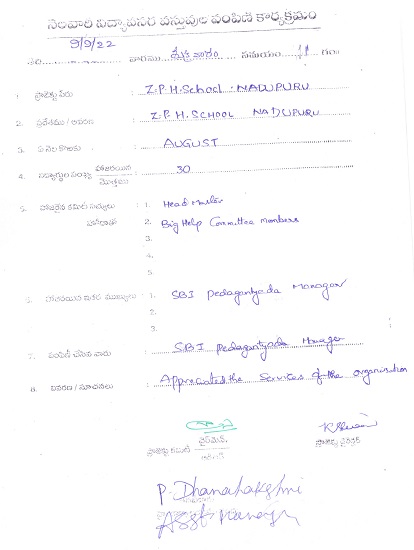 నెలవారి విద్యావసర వస్తువుల పంపిణీ కార్యక్రమం
9/9/22
వారము శుక్రవారం సమయం 11 గం॥
1. ప్రాజెక్టు పేరు : Z.P.H.School NADUPURU
2. ప్రదేశము / ఆవరణ : Z.P.H.SCHOOL NADUPURU
3. ఏ నెల కొరకు : AUGUST
4. విద్యార్థుల సంఖ్య హాజరయిన / మొత్తము : 30
5. హాజరైన కమిటీ సభ్యులు : 1. Head Master
2. Big Help Committee Members
3.
4.
5.
6. : 1. SBI Pedagantyada Manager
2.
3.
7. పంపిణీ చేసిన వారు : SBI Pedagantyada Manager
8. వివరణ / సూచనలు : Appreciated the Services of the organisation
ప్రాజెక్టు కమిటీ చైర్మన్
ప్రాజెక్టు డైరెక్టర్
P. Dhanalakshmi
Asst Manager